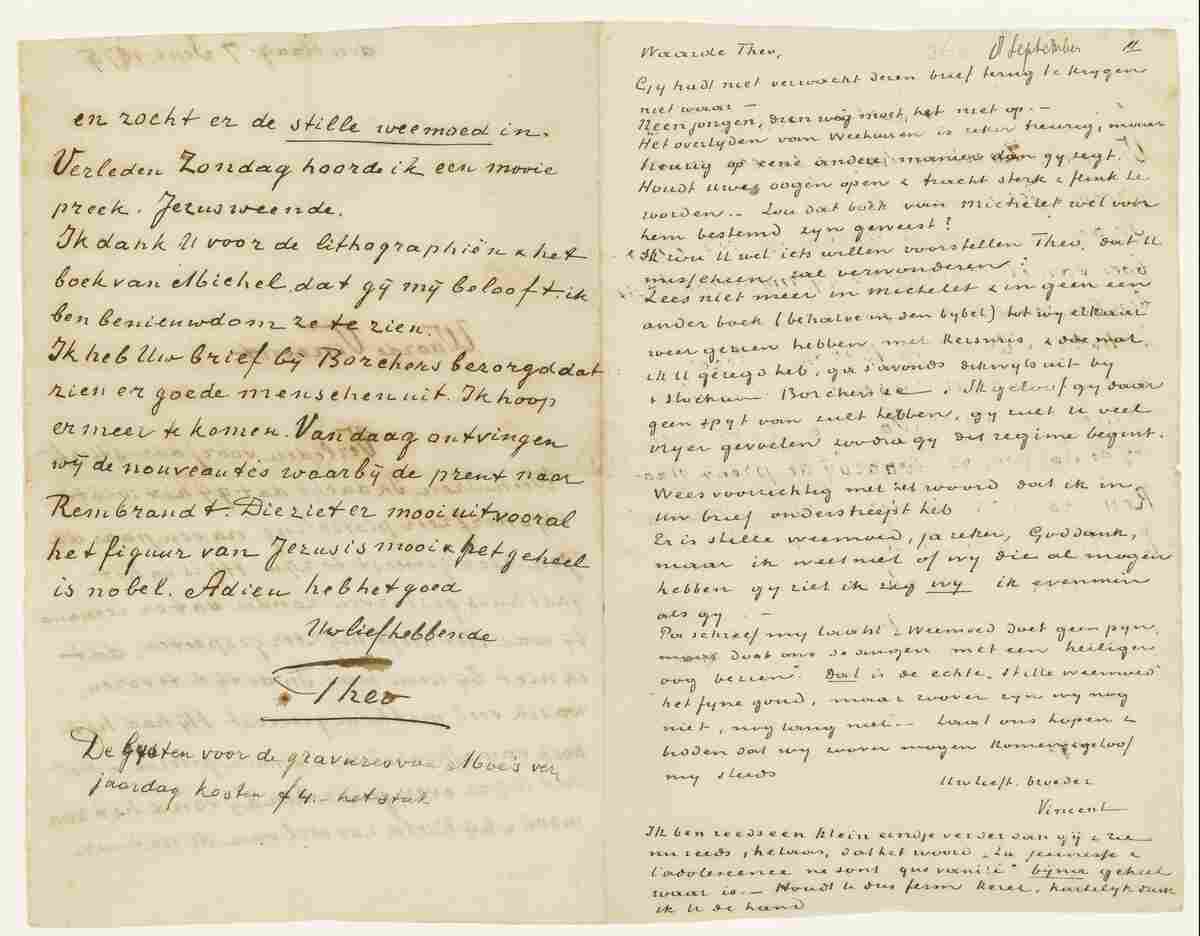 en zocht er de stille weemoed in.
Verleden Zondag hoorde ik een mooie
preek. Jezus weende.
Ik dank U voor de lithographiën & het
boek van Michel, dat gij mij belooft. ik
ben benieuwd om ze te zien.
Ik heb Uw brief bij Borchers bezorgd dat
zien er goede menschen uit. Ik hoop
er meer te komen. Vandaag ontvingen
wij de nouveautés waarbij de prent naar
Rembrandt. Die ziet er mooi uit. vooral
het figuur van Jezus is mooi & het geheel
is nobel. Adieu heb het goed
Uw liefhebbende
Theo
De lijsten voor de gravures van Moe's ver
jaardag kosten f 4.- het stuk
Waarde Theo,
8 September
Gy hadt niet verwacht dezen brief terug te krygen
niet waar —
Neen jongen, dien weg moet het niet op. —
Het overlyden van Weehuizen is zeker treurig, maar
treurig op eene andere manier dan gy zegt.
Houdt uwe oogen open & tracht sterk & flink te
worden. — Zou dat boek van Michelet wel voor
hem bestemd zyn geweest?
Ik wou U wel iets willen voorstellen Theo, dat U
misschien zal verwonderen:
Lees niet meer in Michelet & in geen een
ander boek (behalve in den bybel) tot wy elkaar
weer gezien hebben met Kersmis, & doe wat
ik U gezegd heb, ga s'avonds dikwyls uit by
Borchers &c. Ik geloof gy daar
geen spyt van zult hebben, gy zult U veel
vryer gevoelen zoodra gy dit regime begint.
Wees voorzichtig met het woord dat ik in
Uw brief onderstreept heb
Er is stille weemoed, ja zeker, Goddank,
maar ik weet niet of wy die al mogen
hebben gy ziet ik zeg wy ik evenmin
als gy —
Pa schreef my laatst „Weemoed doet geen pyn,
maar doet ons de dingen met een heiliger
oog bezien". Dat is de echte, stille weemoed
het fyne goud, maar zoover zyn wy nog
niet, nog lang niet. — Laat ons hopen &
bidden dat wy zoover mogen komen & geloof
my steeds
Uw liefh. broeder
Vincent
Ik ben reeds een klein eindje verder dan gij & zie
nu reeds, helaas, dat het woord „La jeunesse &
l'adolescence ne sont que vanité" byna geheel
waar is. — Houdt U dus ferm kerel, hartelyk druk
ik U de hand